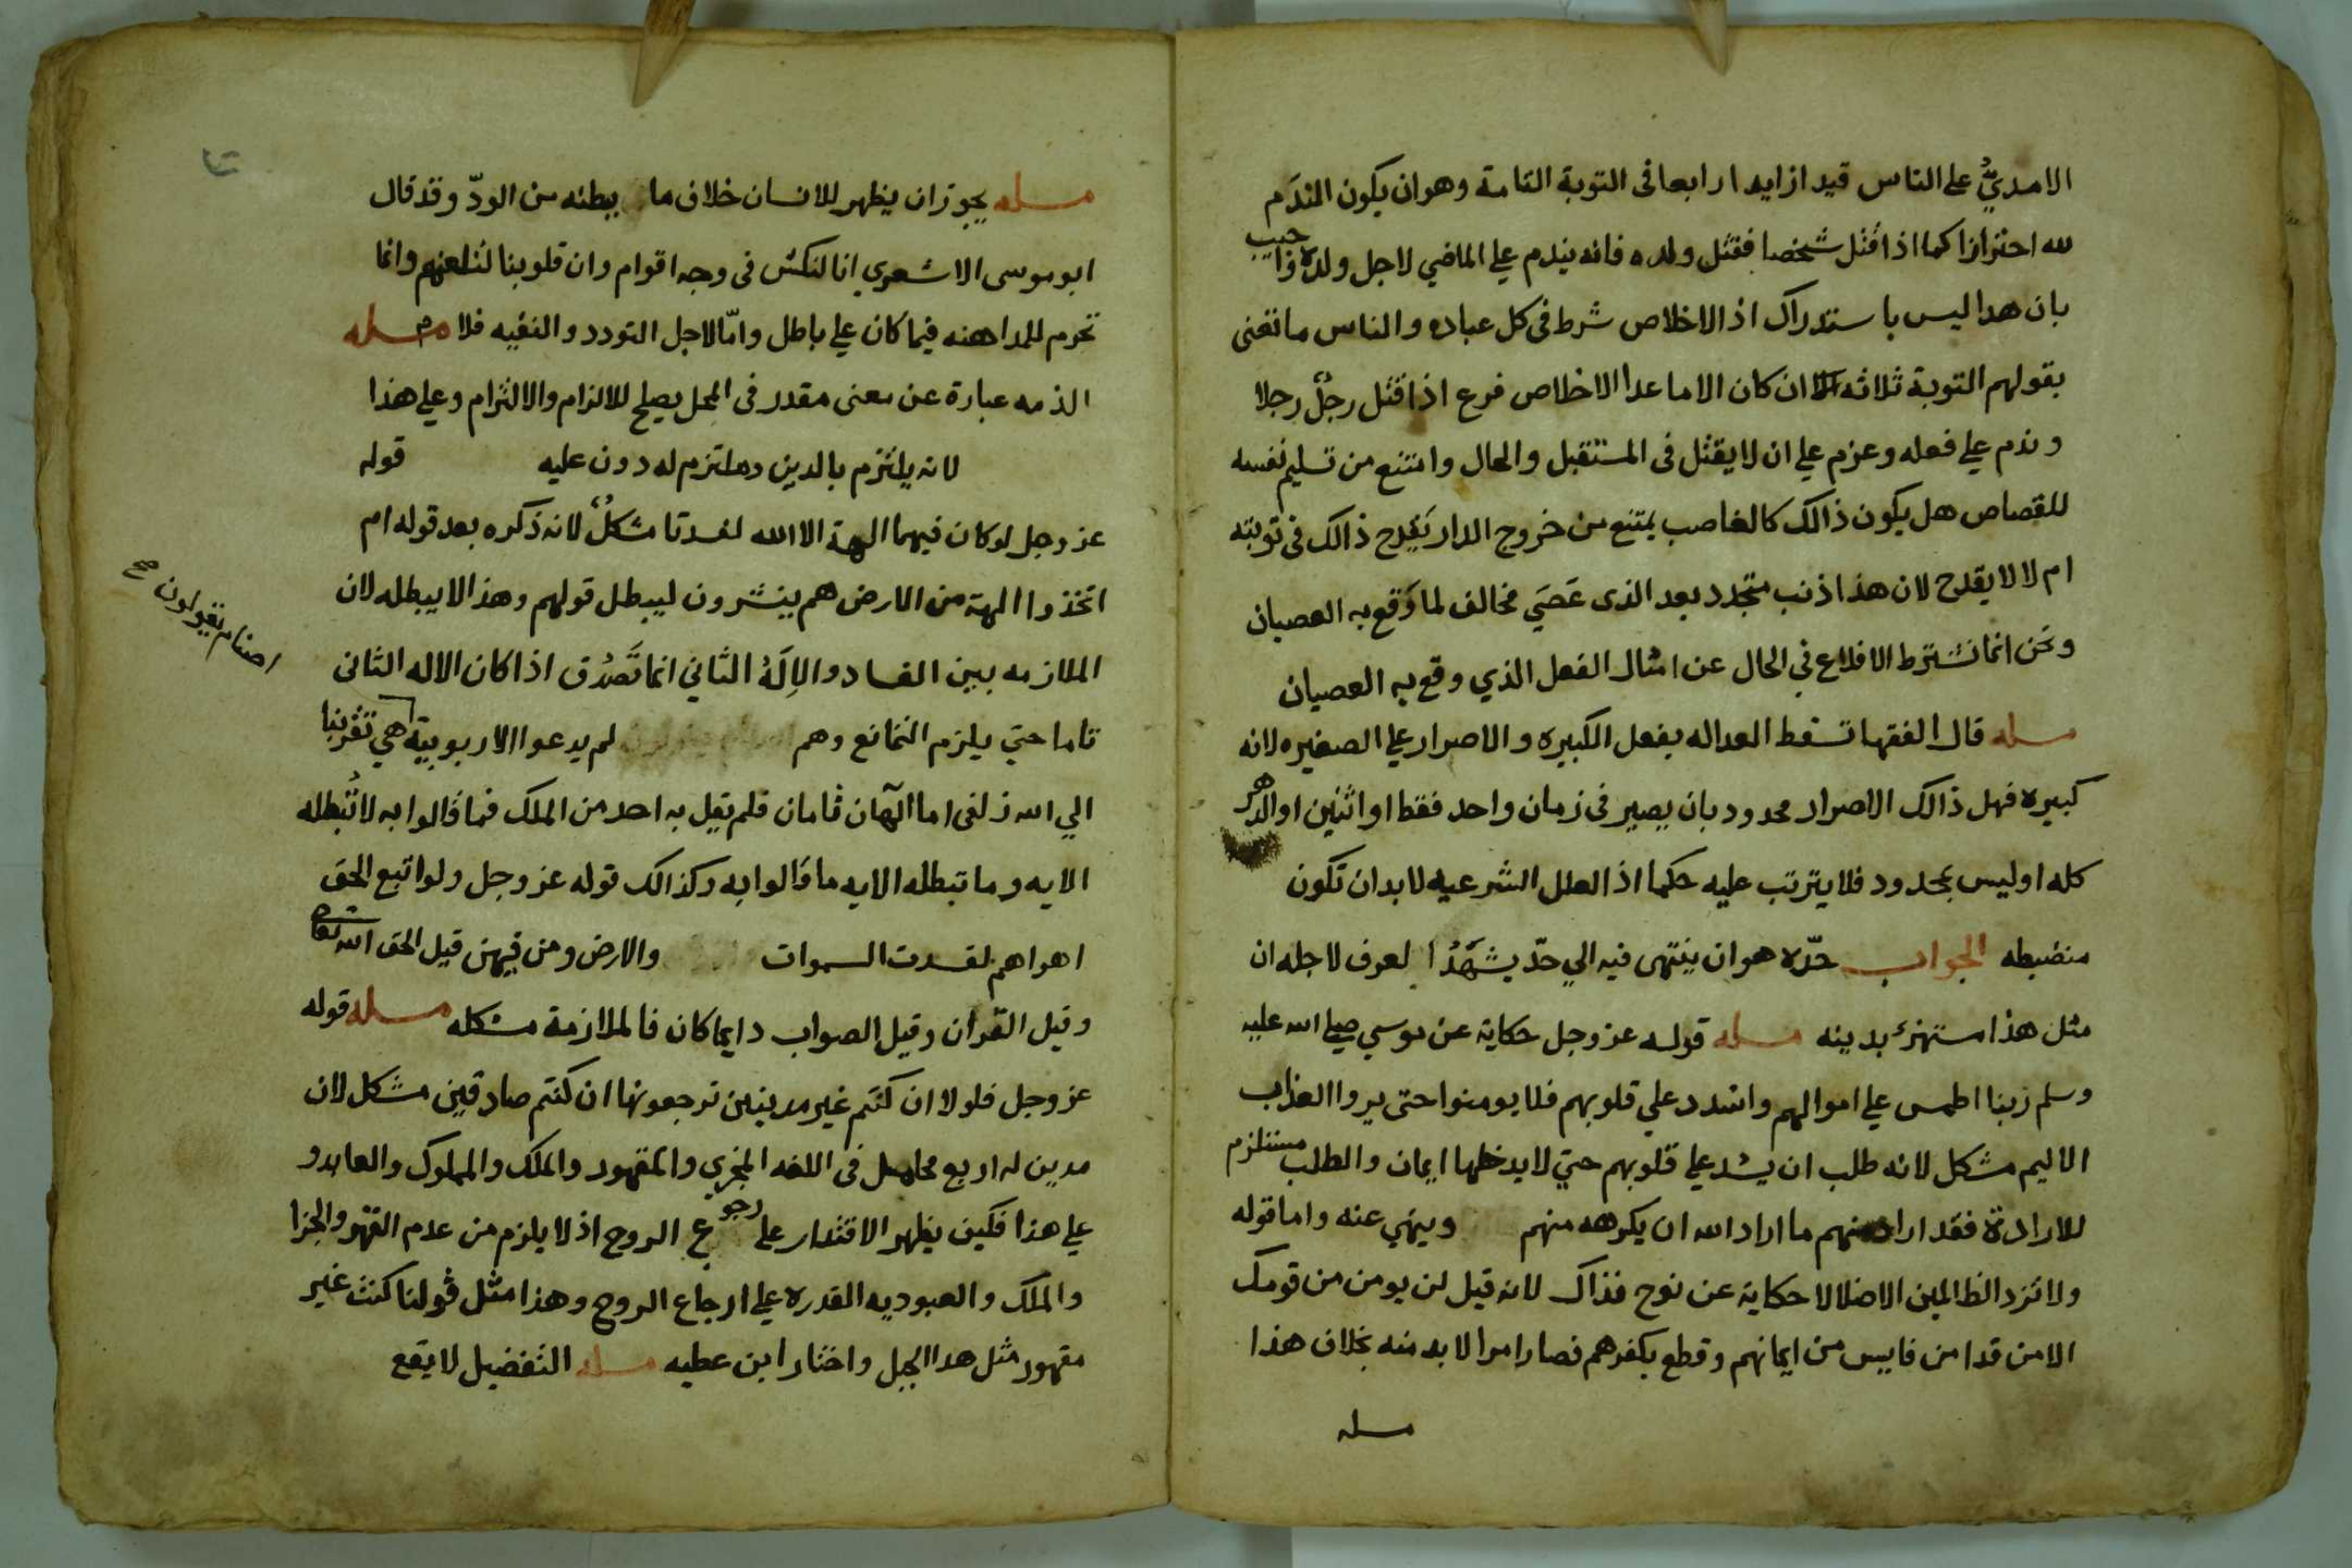 الامديُّ على الناس قيدا زايدا رابعا فى التوبة التامة وهو ان يكون الندَم
لله احترازا كما اذا قتل شخصا فقتل ولده فانه يندم على الماضي لاجل ولده واجيب
بان هدا ليس باستدراك اذ الاخلاص شرط فى كل عباده والناس ما تعنى
بقولهم التوبة ثلاثه اركان الا ما عدا الاخلاص فرع اذا قتل رجلٌ رجلا
وندم على فعله وعزم على ان لا يقتل فى المستقبل والحال وامتنع من تسليم نفسه
للقصاص هل يكون ذالك كالغاصب يمتنع من خروج الدار يَقدح ذالك فى توبته
ام لا لا يقدح لان هذا ذنب متجدد بعد الذى عَصَي مخالف لما وَقع به العصيان
ونحن انما نشترط الاقلاع في الحال عن امثال الفعل الذي وقع به العصيان
مسله قال الفقها تسقط العداله بفعل الكبيره والاصرار علي الصغيره لانه
كبيره فهل ذالك الاصرار محدود بان يصير فى زمان واحد فقط او اثنين او الدهر
كله او ليس بمحدود فلا يترتب عليه حكما اذ العلل الشرعيه لا بد ان تكون
منضبطه الجواب حدّه هو ان ينتهى فيه الي حدّ يشهَدُ العرف لاجله ان
مثل هذا مستهزئ بدينه مسله قوله عز وجل حكاية عن موسي صلى الله عليه
وسلم ربنا اطمس على اموالهم واشدد علي قلوبهم فلا يومنوا حتى يروا العذاب
الاليم مشكل لانه طلب ان يشد على قلوبهم حتي لا يدخلها ايمان والطلب مستلزم
للارادة فقد اراد منهم ما اراد الله ان يكرهه منهم وينهي عنه واما قوله
ولا تزد الظالمين الا ضلالا حكاية عن نوح فذاك لانه قيل لن يومن من قومك
الا من قد امن فايس من ايمانهم وقطع بكفرهم فصار امرا لا بد منه بخلاف هذا
مسله
مسله يجوز ان يظهر للانسان خلاف ما يبطنه من الودّ وقد قال
ابو موسى الاشعري انا لنكشر فى وجه اقوام وان قلوبنا لتلعنهم وانما
تحرم المداهنه فيما كان على باطل وامّا لاجل التودد والتقيه فلا مسله
الذمه عبارة عن معنى مقدر فى المحل يصلح للالزام والالتزام وعلى هذا
لانه يلتزم بالدين وملتزم له دون عليه قوله
عز وجل لو كان فيهما الهة الا الله لفسدتا مشكلٌ لانه ذكره بعد قوله ام
اتخذوا الهة من الارض هم ينشرون ليبطل قولهم وهذا لا يبطله لان
الملازمه بين الفساد والاِلَهُ الثاني انما تَصدُق اذا كان الاله الثانى
تاما حتي يلزم التمانع وهم لم يدعوا الا ربوبية هي تقربنا
اصنام يقولون صح
الي الله زلفى اما الَهان تامان فلم يقل به احد من الملك فما قالوا به لا تُبطله
الايه وما تبطله الايه ما قالوا به وكذالك قوله عز وجل ولو اتبع الحق
اهواهم لفسدت السموات والارض ومن فيهن قيل الحق الله تعالى
وقيل القران وقيل الصواب دايما كان فالملازمة مشكله مسله قوله
عز وجل فلولا ان كنتم غير مدينين ترجعونها ان كنتم صادقين مشكل لان
مدين له اربع محامل فى اللغه المجزي والمقهور والملك والمملوك والعابد و
على هذا فكيف يظهر الاقتدار على رجوع الروح اذ لا يلزم من عدم القهر والجزا
والملك والعبوديه القدره على ارجاع الروح وهذا مثل قولنا كنت غير
مقهور مثل هدا الجبل واختار ابن عطيه مسله التفضيل لا يقع